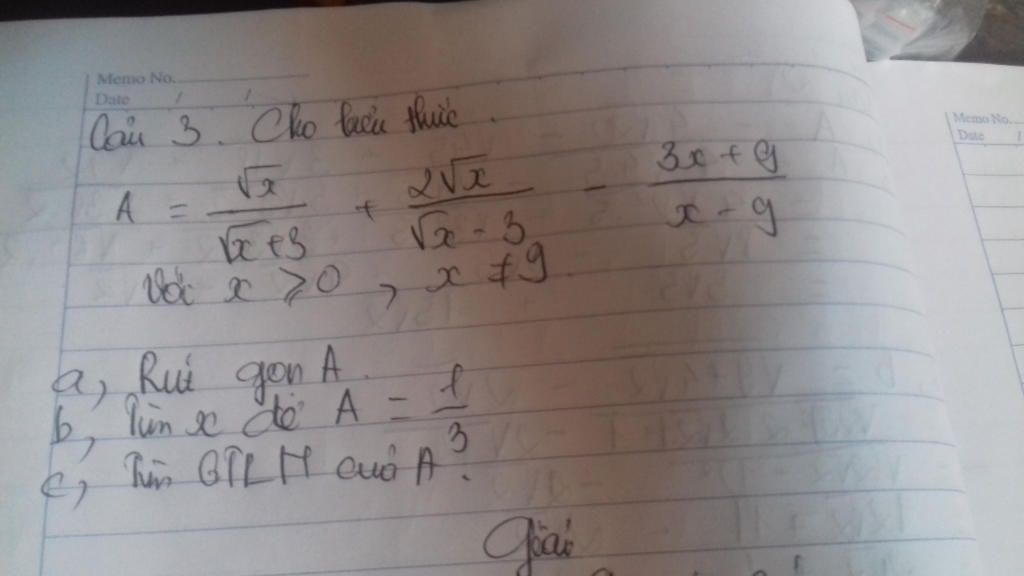 Memo No.
Date / /
Câu 3. Cho biểu thức.
A = √x/(√x+3) + 2√x/(√x-3) - (3x+9)/(x-9)
Với x ≥ 0, x ≠ 9.
a, Rút gọn A.
b, Tìm x để A = 1/3
c, Tìm GTLN của A.
Giải
Memo No.
Date /